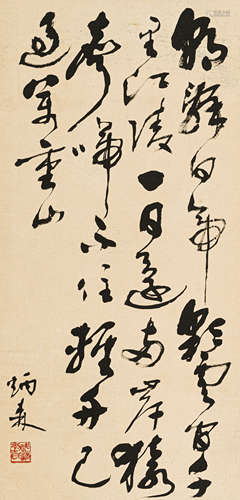 朝辭白帝彩雲間千
里江陵一日還兩岸猿
聲啼不住輕舟已
過萬重山
炳森